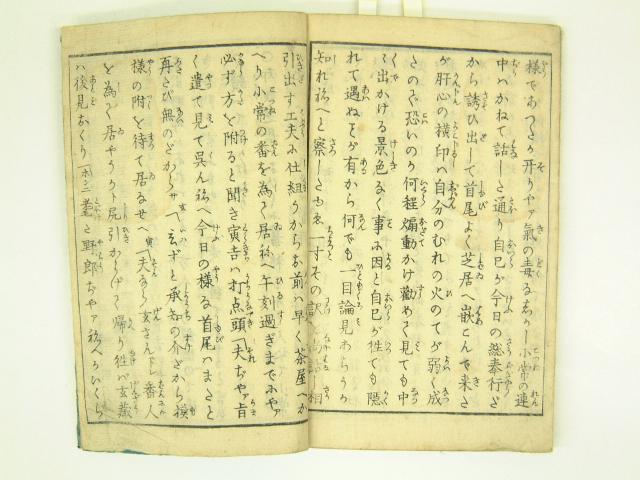 様であつたが夫りやア氣の毒なしかし小常の連
中ハかねて詰した通り自已が今日の惣奉行だ
から誘ひ出して首尾よく芝居へ嵌こんで来た
が肝心の横印ハ自分のむれの火の手が弱く成
たので恐いのか何程煽動かけ勧めて見ても中
〻出かける景色なく事に因と自已が徃ても隠
れて遇ねへが有から何でも一目論見やらうか
知れ祢へと察したもゑ一寸その
引出す工夫に仕組うからお前ハ早く茶屋へか
へり小常の番を為て居祢へ午刻過ぎまでにやア
必ず方を附ると聞き寅吉ハ打点頭「夫ぢやア旨
く遣て見て呉ん祢へ今日の様な首尾ハまたと
再たび無のだから「へ玄ずと承知の介だから模
様の附を待て居なせへ「夫なら亥さんも番人
を為て居やうから尻引からげて帰り徃バ玄蔵
ハ後見おくり 野郎ぢやア祢へが